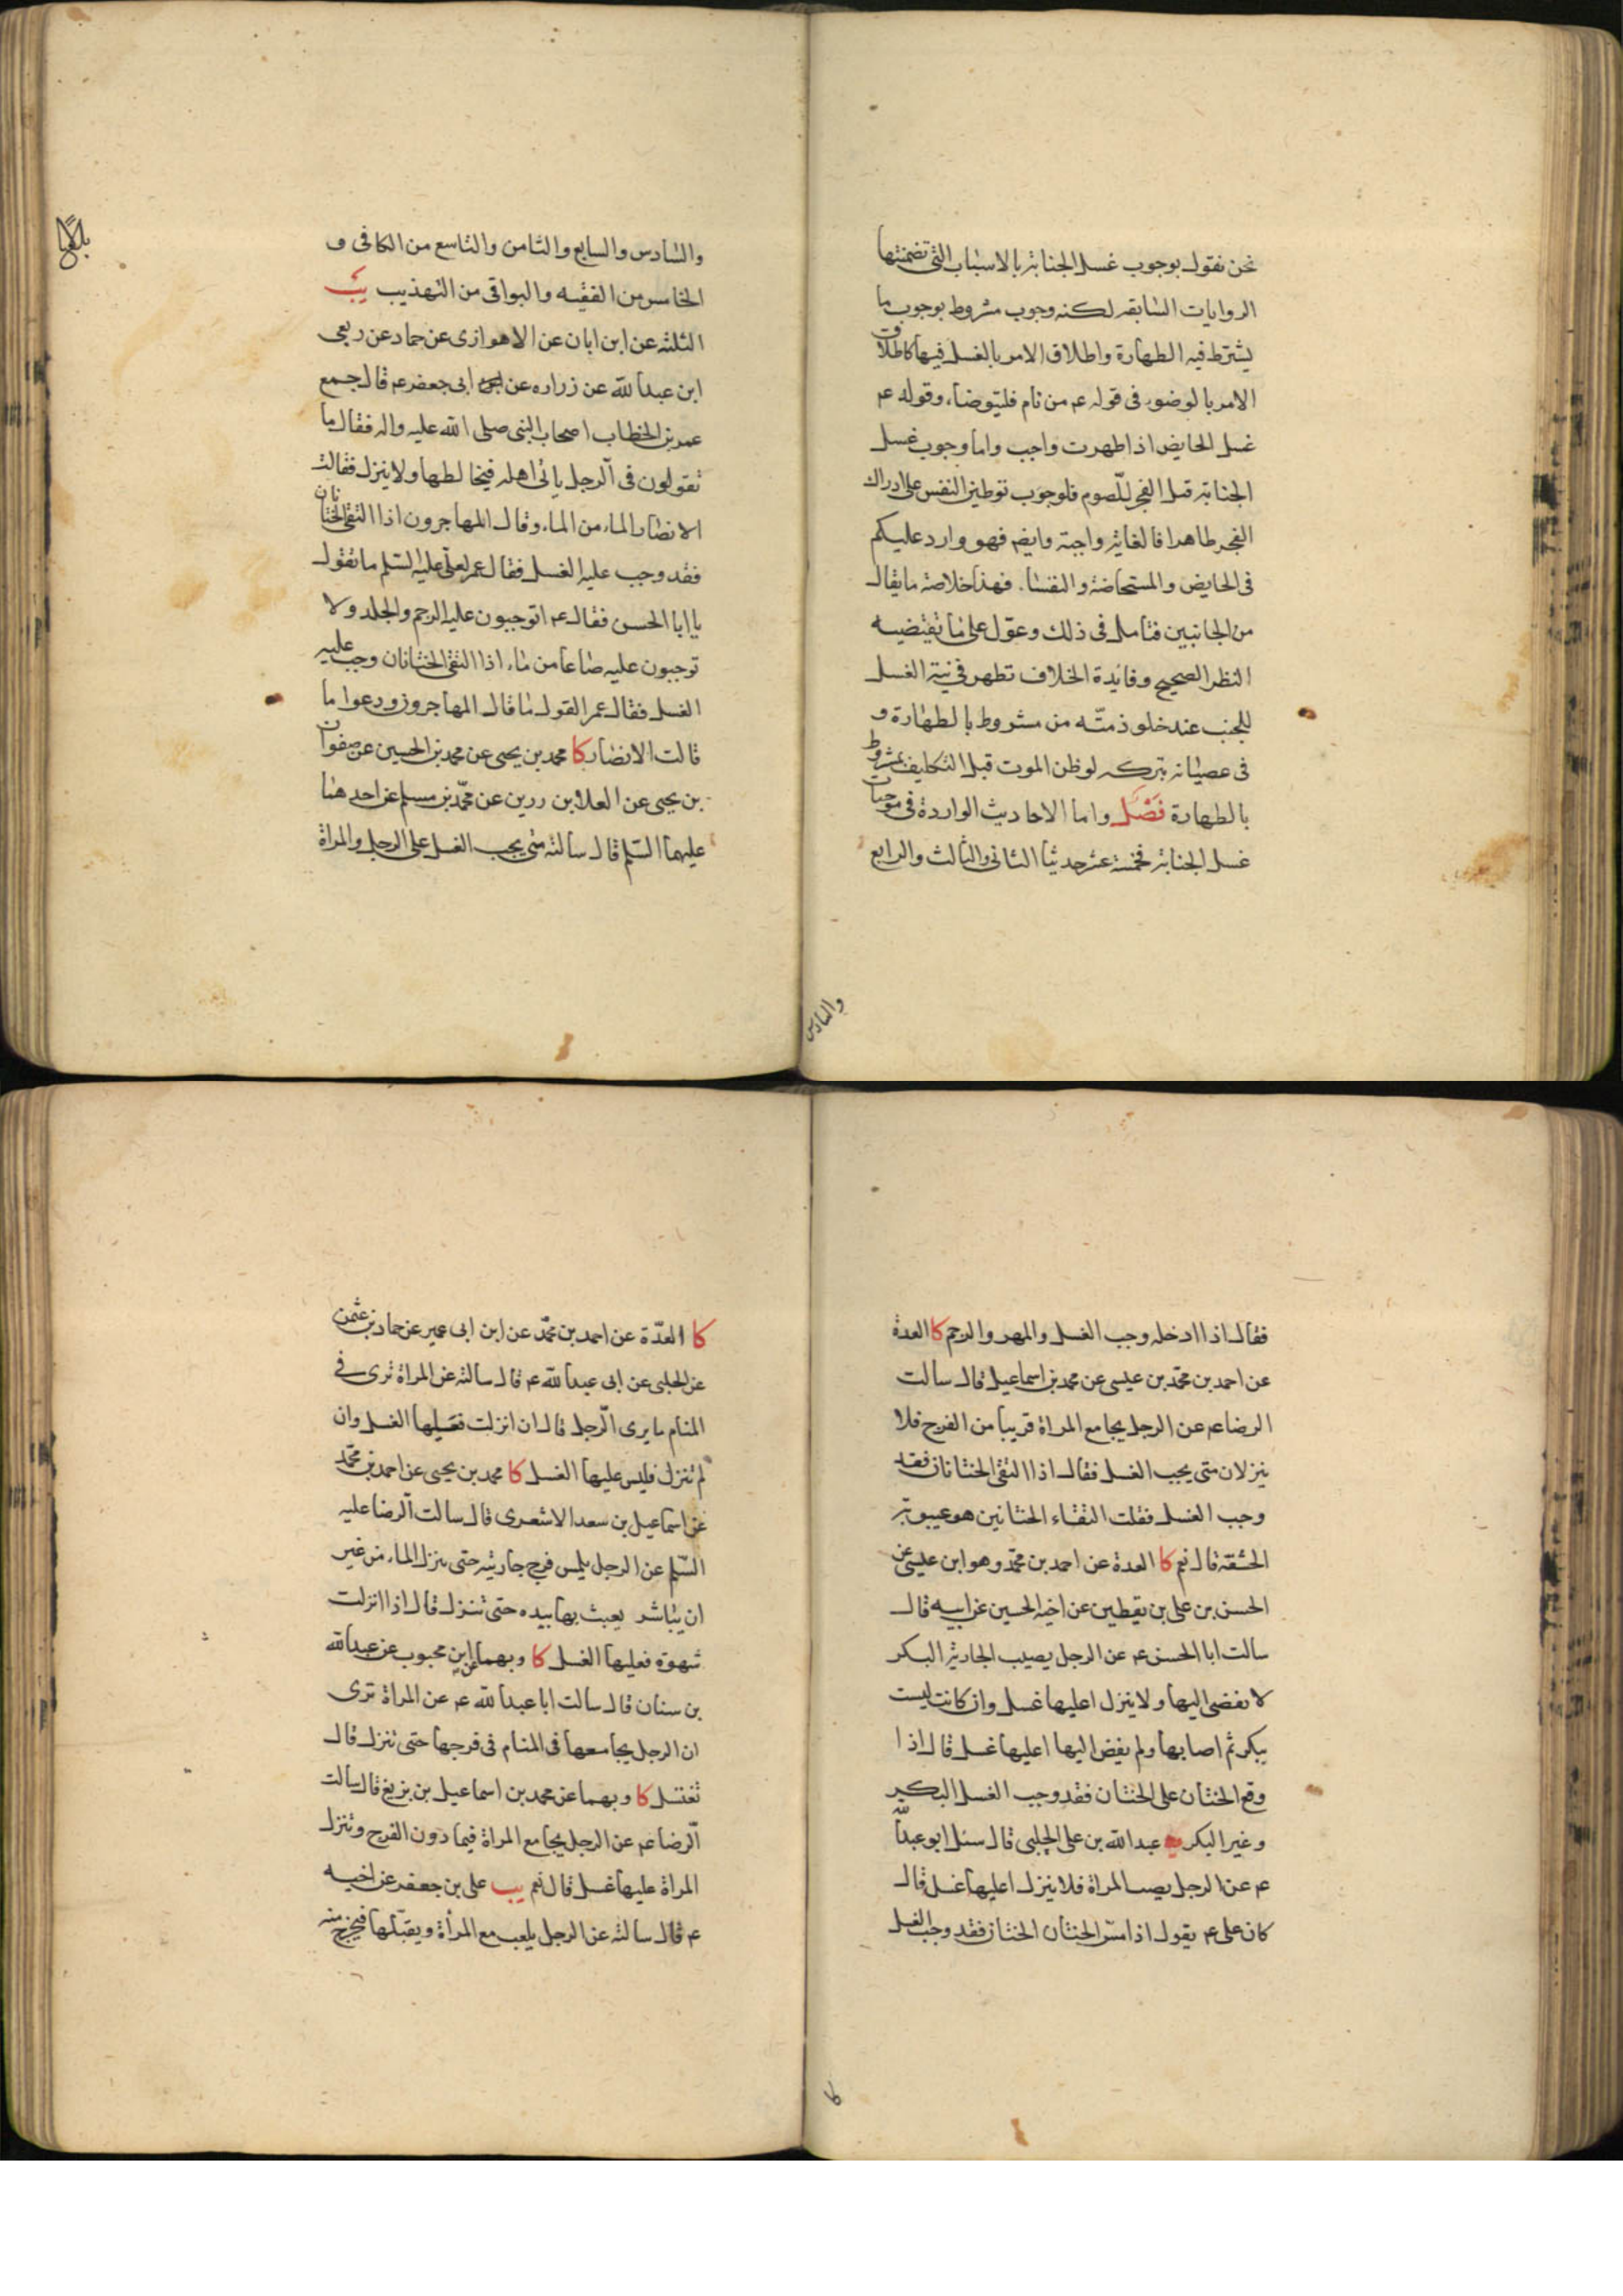 نحن نقول بوجوب غسل الجنابة بالاسباب التى تضمنتها
الروايات السابقه لكنه وجوب مشروط بوجوب ما
يشترط فيه الطهارة واطلاق الامر بالغسل فيها كاطلاق
الامر بالوضوء فى قوله ع من نام فليتوضاء وقوله ع
غسل الحايض اذا طهرت واجب واما وجوب غسل
الجنابة قبل الفجر للصوم فلوجوب توطين النفس على ادراك
الفجر طاهرا فالغاية واجبة وايضم فهو وارد عليكم
فى الحايض والمستحاضة والنفساء فهذا خلاصة ما يقال
من الجانبين فتامل فى ذلك وعوّل على ما تقتضيه
النظر الصحيح وفايدة الخلاف تظهر فى نية الغسل
للجنب عند خلو ذمتّه من مشروط بالطهارة و
فى عصيانه بتركه لو ظن الموت قبل التكليف بمشروط
بالطهارة فَصْل واما الاحاديث الواردة فى موجبات
غسل الجنابة فخمسة عشر حديثا الثانى والثالث والرابع
والسادس
والسادس والسابع والثامن والتاسع من الكافى و
الخامس من الفقيه والبواقى من التهذيب يب
الثلثه عن ابن ابان عن الاهوازى عن حماد عن ربعى
ابن عبد الله عن زراره عن ابى جعفر ع قال جمع
عمر بن الخطاب اصحاب النبى صلى الله عليه واله فقال ما
تقولون فى الرجل ياتى اهله فيخالطها ولا ينزل فقالت
الانصار الماء من الماء وقال المهاجرون اذا التقى الختانان
فقد وجب عليه الغسل فقال عمر لعلى عليه السّلم ما تقول
يا ابا الحسن فقال ع اتوجبون عليه الرجم والجلد ولا
توجبون عليه صاعا من ماء اذا التقى الختانان وجب عليه
الغسل فقال عمر القول ما قال المهاجرون ودعوا ما
قالت الانصار كا محمد بن يحيى عن محمد بن الحسين عن صفوان
بن يحيى عن العلا بن رزين عن محمّد بن مسلم عن احدهما
عليهما السّلم قال سالته متى يجب الغسل على الرجل والمراة
بلغ
فقال اذا ادخله وجب الغسل والمهر والرجم كا العدة
عن احمد بن محمّد بن عيسى عن محمد بن اسماعيل قال سالت
الرضا ع عن الرجل يجامع المراة قريبا من الفرج فلا
ينزلان متى يجب الغسل فقال اذا التقى الختانان فقد
وجب الغسل فقلت التقاء الختانين هو غيبوبة
الحشفة قال نعم كا العدة عن احمد بن محمّد وهو ابن عيسى عن
الحسن بن على بن يقطين عن اخيه الحسين عن ابيه قال
سالت ابا الحسن ع عن الرجل يصيب الجارية البكر
لا يفضى اليها ولا ينزل اعليها غسل وان كانت ليست
ببكر ثم اصابها ولم يفض اليها اعليها غسل قال اذا
وقع الختان على الختان فقد وجب الغسل البكر
وغير البكر يه عبد الله بن على الحلبى قال سئل ابو عبد الله
ع عن الرجل يصيب المراة فلا ينزل اعليها غسل قال
كان على ع يقول اذا مسّ الختان الختان فقد وجب الغسل
كا
كا العدّة عن احمد بن محمّد عن ابن ابى عمير عن حماد بن عثمن
عن الحلبى عن ابى عبد الله ع قال سالته عن المراة ترى فى
المنام ما يرى الرّجل قال ان انزلت فعليها الغسل وان
لم تنزل فليس عليها الغسل كا محمد بن يحيى عن احمد بن محمّد
عن اسماعيل بن سعد الاشعرى قال سالت الرضا عليه
السّلم عن الرجل يلمس فرج جاريته حتى ينزل الماء من غير
ان يباشر يعبث بها بيده حتى تنزل قال اذا انزلت
شهوة فعليها الغسل كا وبهما عن ابن محبوب عن عبد الله
بن سنان قال سالت ابا عبد الله ع عن المراة ترى
ان الرجل يجامعها فى المنام فى فرجها حتى تنزل قال
تغتسل كا وبهما عن محمد بن اسماعيل بن بزيع قال سالت
الرضا ع عن الرجل يجامع المراة فيما دون الفرج وتنزل
المراة عليها غسل قال نعم يب على بن جعفر عن اخيه
ع قال سالته عن الرجل يلعب مع المرأة ويقبّلها فيخرج منه